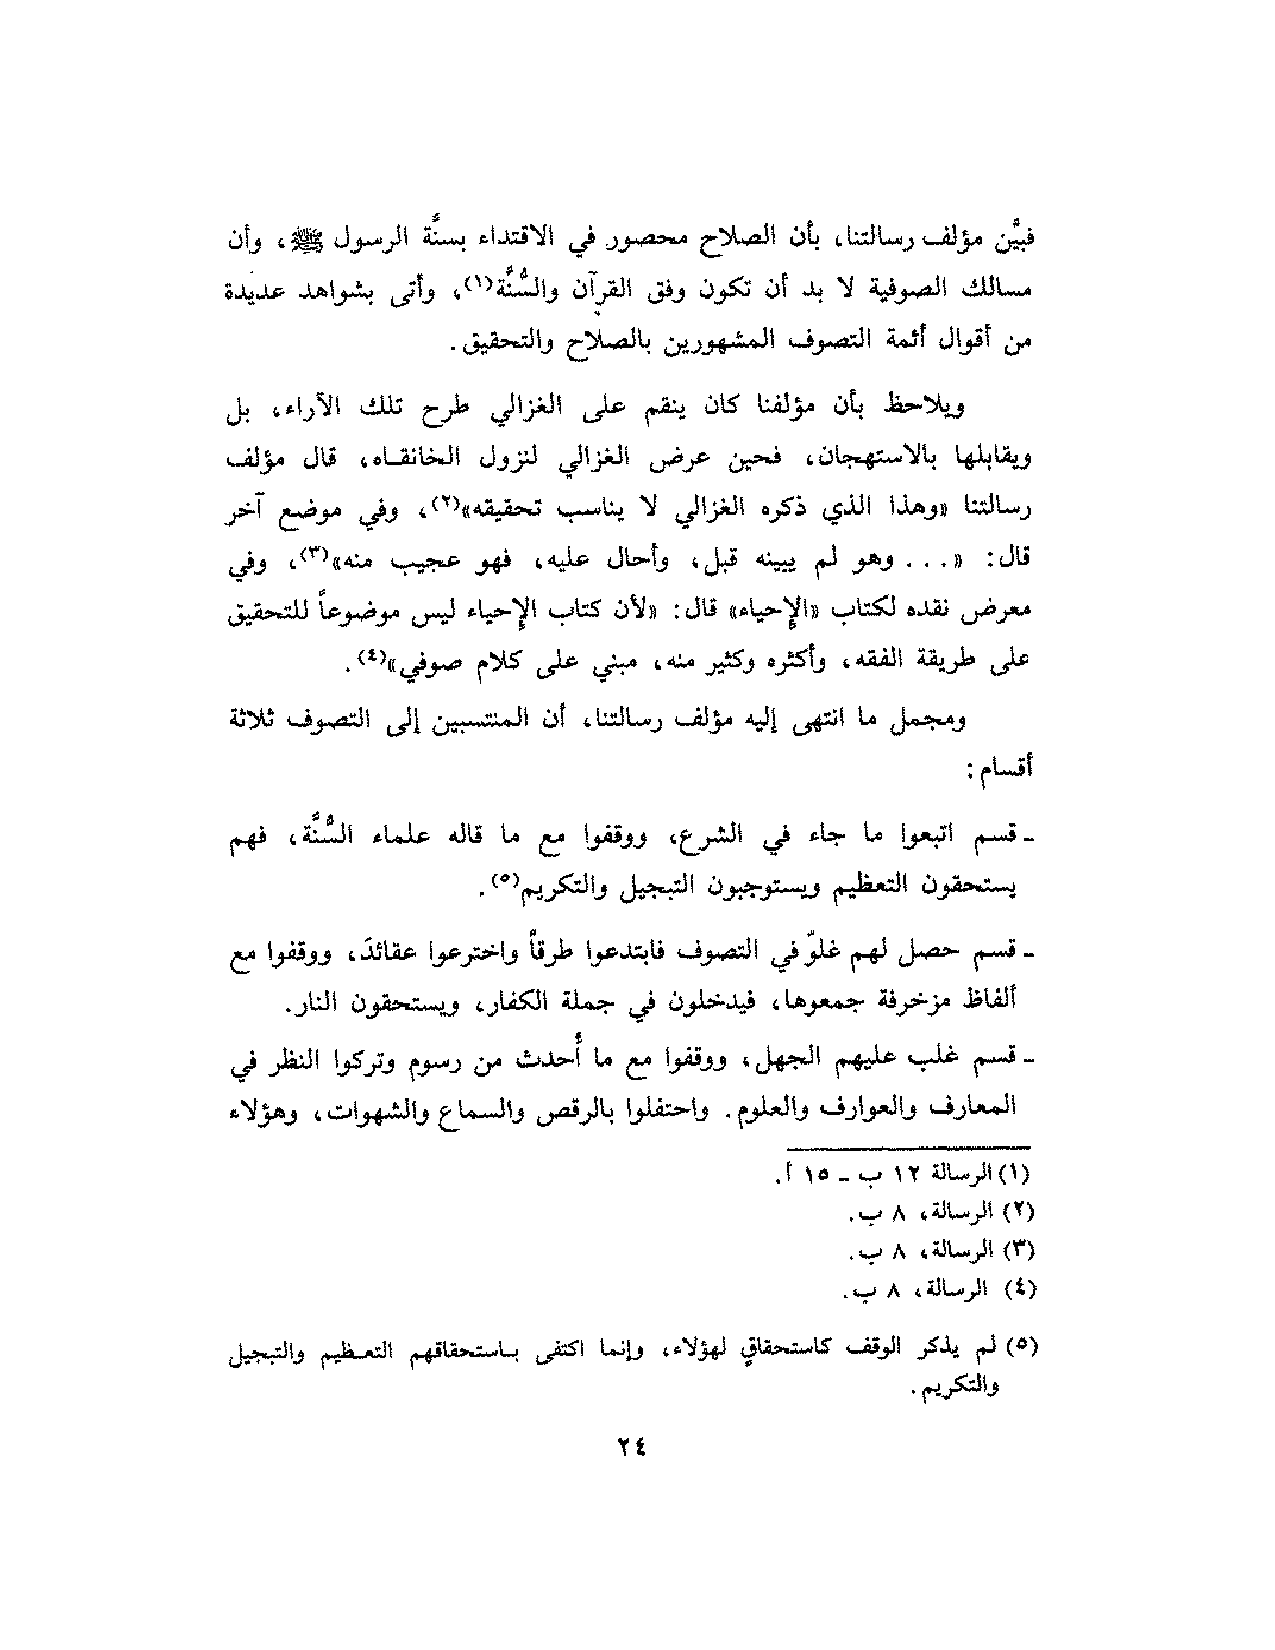 فبيَّن مؤلف رسالتنا، بأن الصلاح محصور في الاقتداء بسنَّة الرسول ﷺ، وأن
مسالك الصوفية لا بد أن تكون وفق القرآن والسُّنَّة(١)، وأتى بشواهد عديدة
من أقوال أئمة التصوف المشهورين بالصلاح والتحقيق.
ويلاحظ بأن مؤلفنا كان ينقم على الغزالي طرح تلك الآراء، بل
ويقابلها بالاستهجان، فحين عرض الغزالي لنزول الخانقاه، قال مؤلف
رسالتنا «وهذا الذي ذكره الغزالي لا يناسب تحقيقه»(٢)، وفي موضع آخر
قال: «... وهو لم يبينه قبل، وأحال عليه، فهو عجيب منه»(٣)، وفي
معرض نقده لكتاب «الإحياء» قال: «لأن كتاب الإحياء ليس موضوعاً للتحقيق
على طريقة الفقه، وأكثره وكثير منه، مبني على كلام صوفي»(٤).
ومجمل ما انتهى إليه مؤلف رسالتنا، أن المنتسبين إلى التصوف ثلاثة
أقسام:
- قسم اتبعوا ما جاء في الشرع، ووقفوا مع ما قاله علماء السُّنَّة، فهم
يستحقون التعظيم ويستوجبون التبجيل والتكريم(٥).
- قسم حصل لهم غلوّ في التصوف فابتدعوا طرقاً واخترعوا عقائدَ، ووقفوا مع
ألفاظ مزخرفة جمعوها، فيدخلون في جملة الكفار، ويستحقون النار.
- قسم غلب عليهم الجهل، ووقفوا مع ما أُحدث من رسوم وتركوا النظر في
المعارف والعوارف والعلوم. واحتفلوا بالرقص والسماع والشهوات، وهؤلاء
(١) الرسالة ١٢ ب - ١٥ أ.
(٢) الرسالة، ٨ ب.
(٣) الرسالة، ٨ ب.
(٤) الرسالة، ٨ ب.
(٥) لم يذكر الوقف كاستحقاقٍ لهؤلاء، وإنما اكتفى باستحقاقهم التعظيم والتبجيل
والتكريم.
٢٤